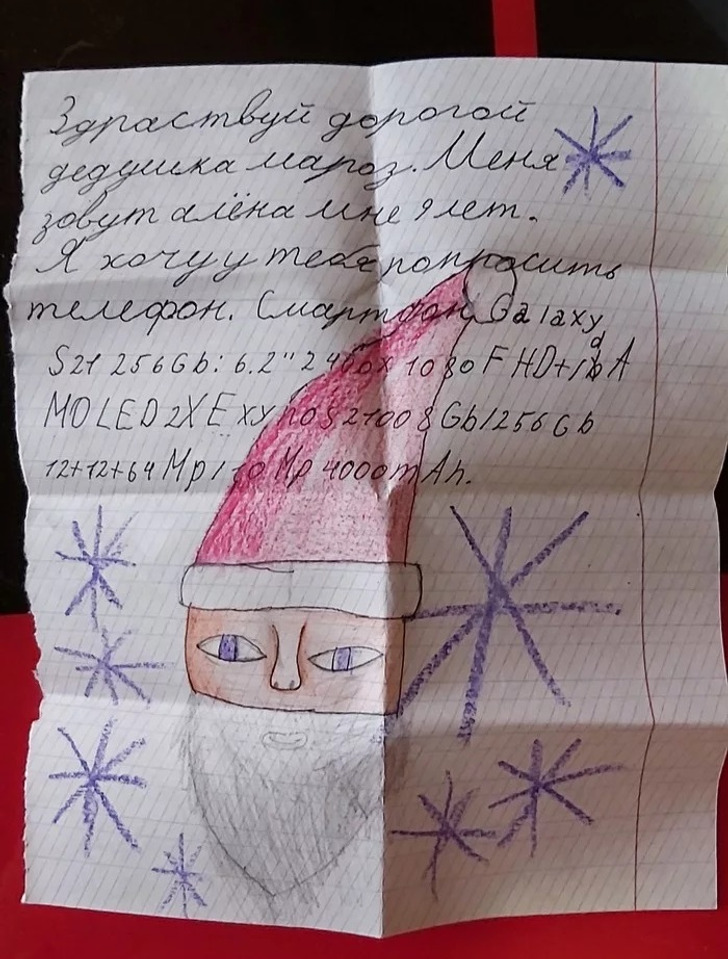 Здраствуй дорогой
дедушка мароз. Меня
зовут алёна мне 9 лет.
Я хочу у тебя попросить
телефон. Смартфон Galaxy
S21 256Gb: 6.2" 2400x1080 FHD+/
MOLED 2X Exynos 2100 8Gb/256Gb
12+12+64 Mp/10 Mp 4000mAh.